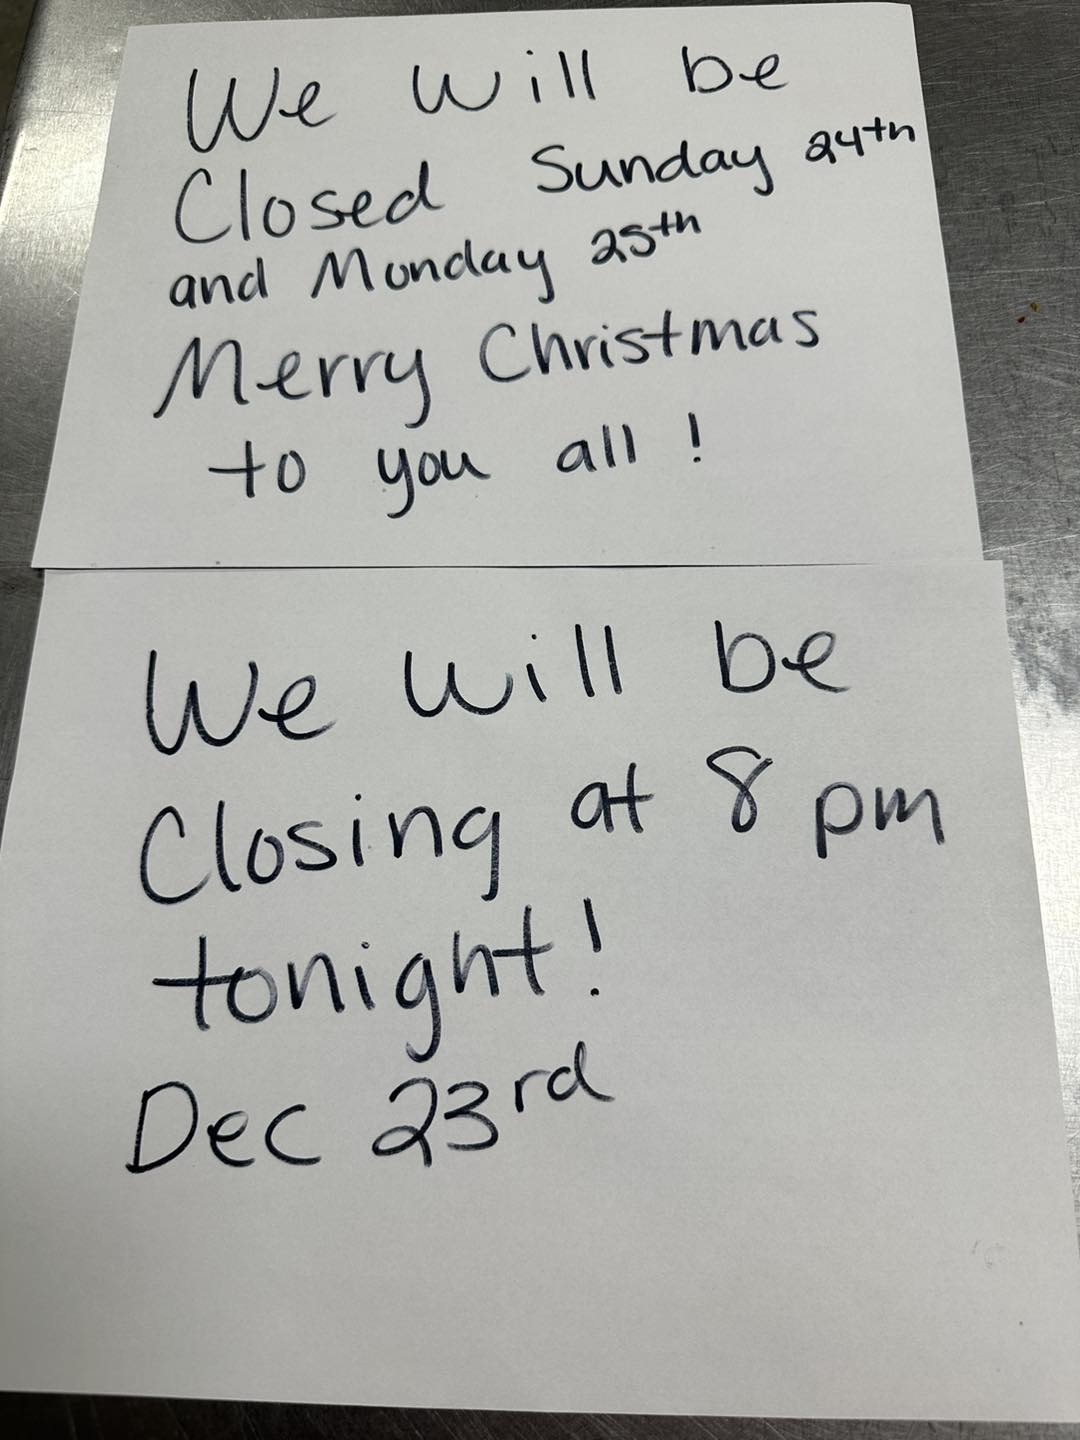 We will be
Closed Sunday 24th
and Monday 25th
Merry Christmas
to you all !
We will be
Closing at 8 pm
tonight!
Dec 23rd